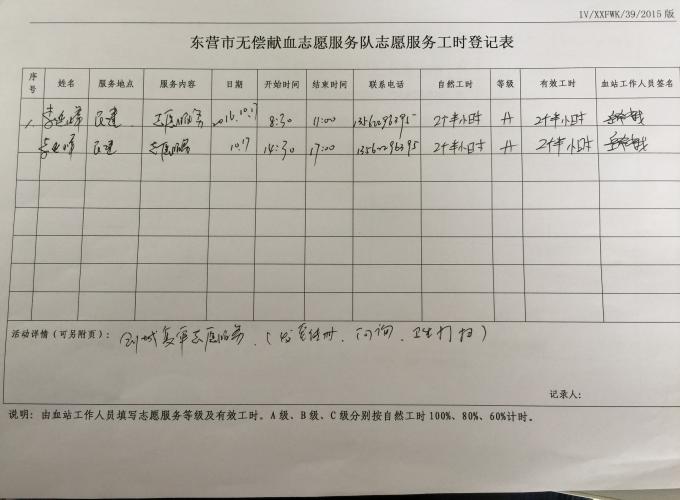 1V/XXFWK/39/2015 版
东营市无偿献血志愿服务队志愿服务工时登记表
序号 姓名 服务地点 服务内容 日期 开始时间 结束时间 联系电话 自然工时 等级 有效工时 血站工作人员签名
志愿服务 2016.10.17 8:30 11:00 13562296395 2个半小时 A 2个半小时
志愿服务 10.17 14:30 17:00 13562296395 2个半小时 A 2个半小时
活动详情（可另附页）： 创城复审志愿服务、（ 问询、卫生打扫）
记录人：
说明：由血站工作人员填写志愿服务等级及有效工时。A 级、B 级、C 级分别按自然工时 100%、80%、60%计时。